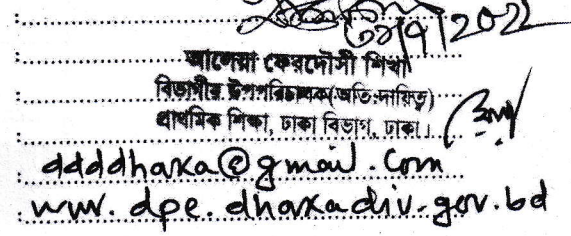 2022
আলেয়া ফেরদৌসী শিখা
বিভাগীয় উপপরিচালক(অতি:দায়িত্ব)
প্রাথমিক শিক্ষা, ঢাকা বিভাগ, ঢাকা।
ddddhaka@gmail.com
www.dpe.dhakadiv.gov.bd